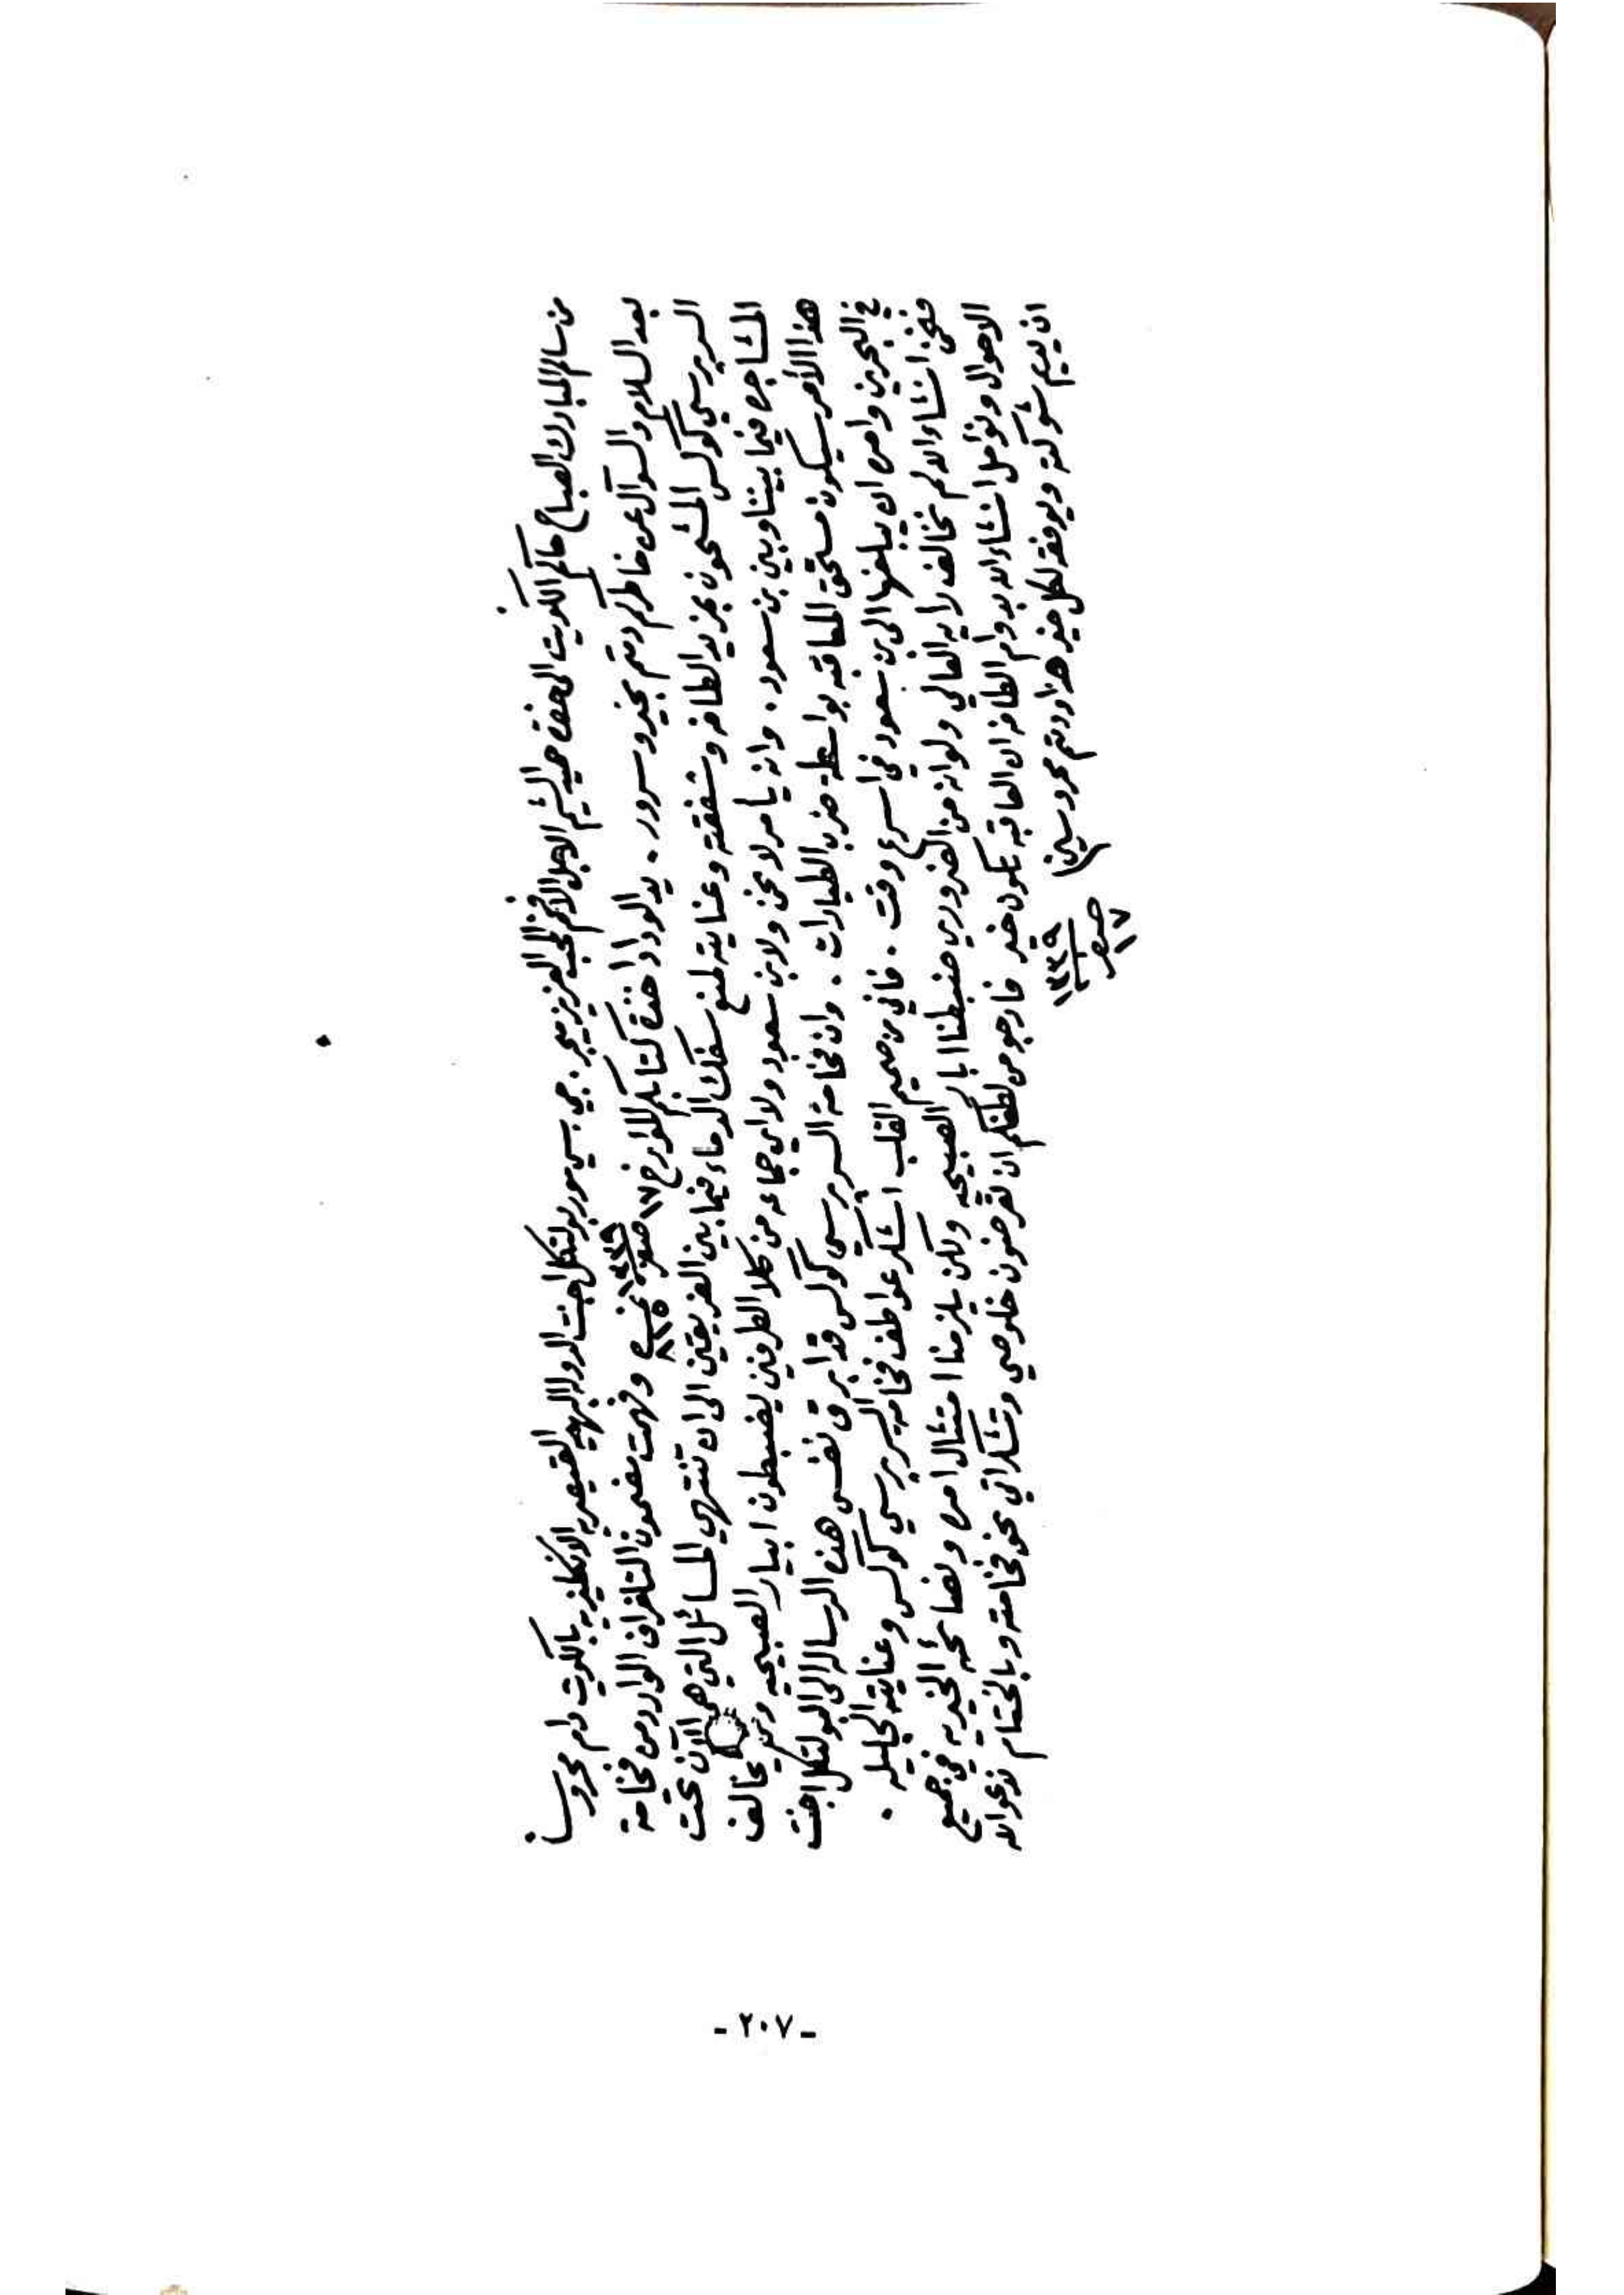 من سالم المبارك الصباح حاكم الكويت الى حضرة حميد الشيم الاجل الافخم المحب العزيز ميجر. جي. سي مور بولتكل اجنت الدوله البهيه القيصريه الانكليزيه بالكويت دام محروسا
بعد السلام والسؤال عن خاطركم دمتم بخير وسرور. يد الوداد اخذة كتابكم المؤرخ ١٧ صفر ١٣٣٩ نمرة ٨١٥ وفهمت مضمون التلغراف الوارد من فخامة
السر برسي كوكس المشحون بمزيد الطافه وشفقته وعنايته لمنع سفك الدماء فيما بين الفريقين الى ان تنتهي المسائل التي هي الآن تحت
المشاجره فيما بيننا وبين بن سعود. وانه يأمر لا نحن ولا بن سعود ولا اي جماعه من كلا الطرفين يضبطون ابيار الصبيحيه ومن يخالف
هذا الأمر سيكون مستحق المعاقبه بواسطة ضرب الطيارات. وان فخامة السر برسي كوكس قد ابرق نفس هذه الرساله الى البولتكل اجنت
في البحرين وامره ان يبلغها الى بن سعود في اسرع وقت. فاني من صميم القلب اشكر عواطف فخامة السر برسي كوكس وعنايته الجليله.
فنحن انشاء الله لم نخالف لرأيه العالي ولو انه من الضروري ضبطنا ابار الصبيحيه ولكن يلزمنا امتثال امره ونصائحه الخيريه في جميع
الاحوال ونؤمل انشاء الله بدوام الطافه ان العاقبه تكون خير فارجو من لطفكم ان تعرضون خلوصي وتشكراتي نحو فخامته وبالختام ندعو الله
ان يديم شوكته ويوفقه لكل خير هذا ودمتم محروسين
١٧ صفر ١٣٣٩
- ٢٠٧ -